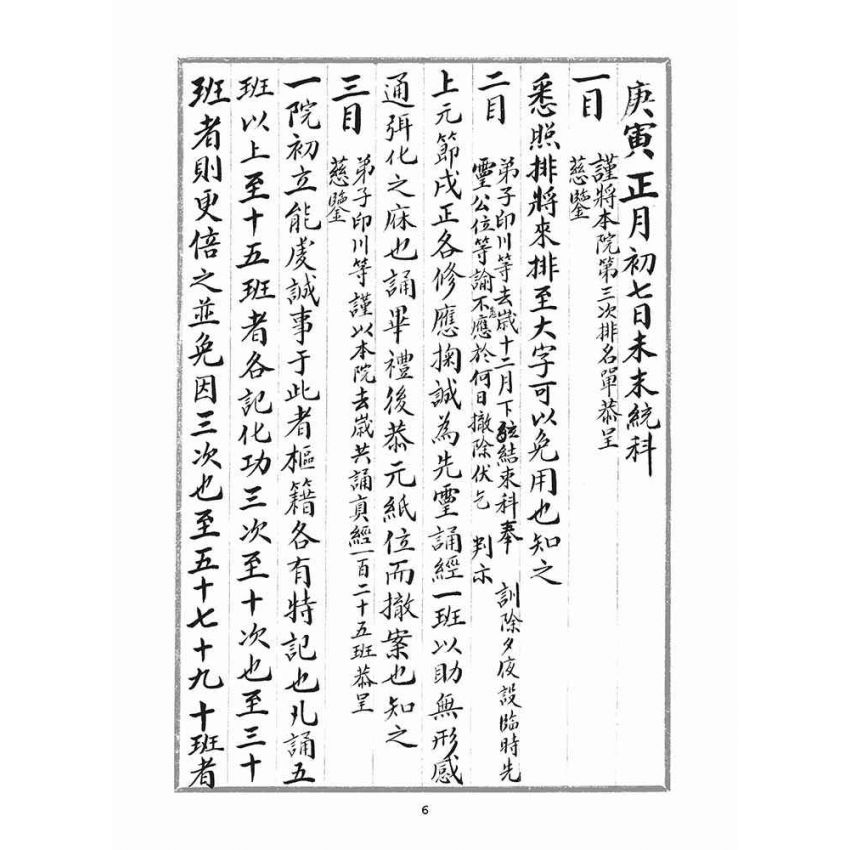 庚寅正月初七日未末統科
一目 謹將本院第三次排名單恭呈
慈鑒
悉照排將來排至大字可以免用也知之
二目 弟子印川等去歲十二月下弦結束科奉 訓除夕夜設臨時先
靈公位等諭不應於何日撤除伏乞 判示
上元節戌正各修應掬誠為先靈誦經一班以助無形感
通弭化之庥也誦畢禮後恭元紙位而撤案也知之
三目 弟子印川等謹以本院去歲共誦真經一百二十五班恭呈
慈鑒
一院初立能虔誠事于此者樞籍各有特記也凡誦五
班以上至十五班者各記化功三次至十次也至三十
班者則更倍之並免因三次也至五十七十九十班者
6